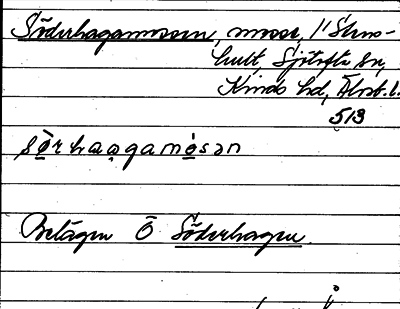 Söderhagamossen, mosse, 1/1 Stens-
hult, Sjötofta sn,
Kinds hd, Älvsb. l.
513
sörhaagamósən
Belägen Ö Söderhagen.